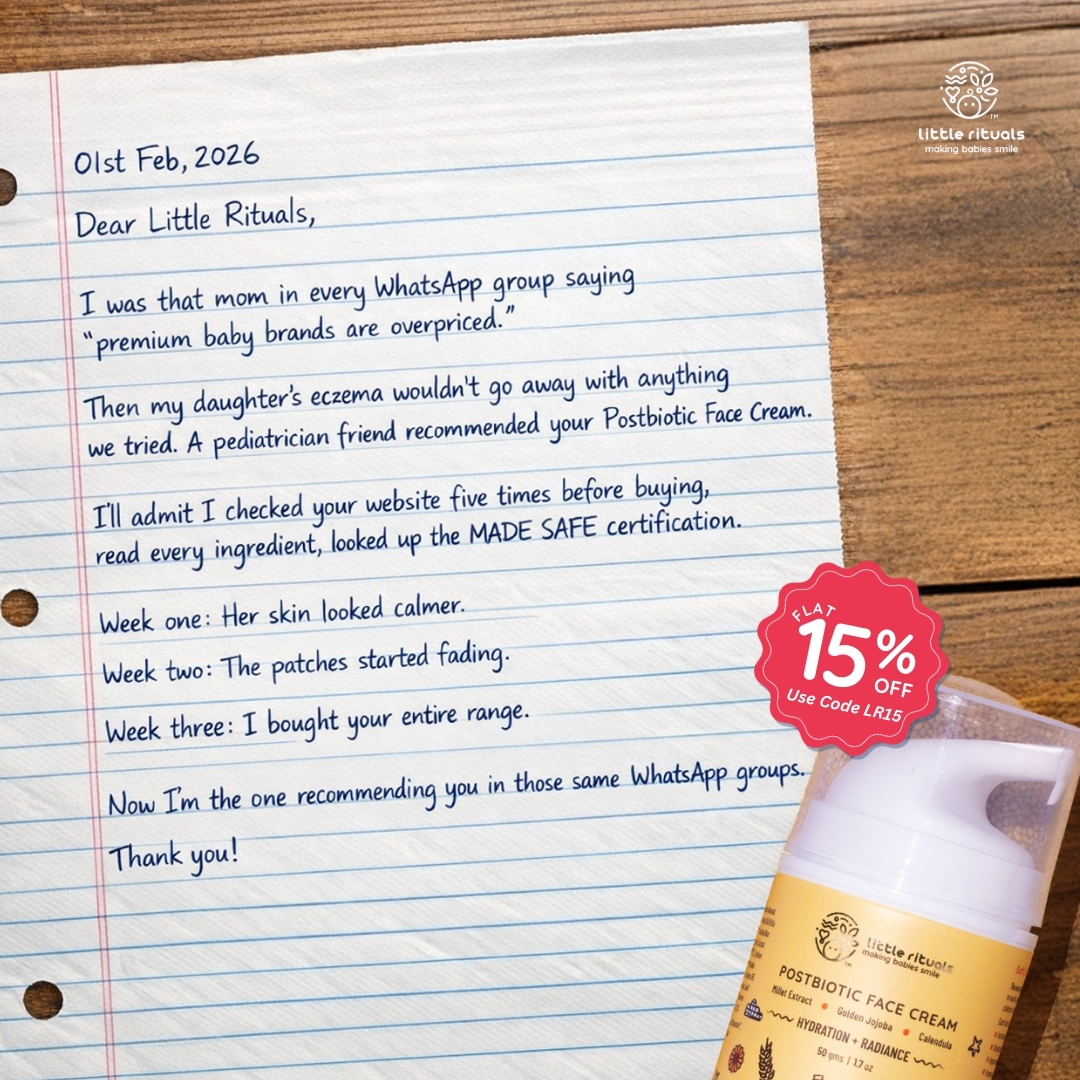 little rituals
making babies smile
01st Feb, 2026
Dear Little Rituals,
I was that mom in every WhatsApp group saying
“premium baby brands are overpriced.”
Then my daughter's eczema wouldn't go away with anything
we tried. A pediatrician friend recommended your Postbiotic Face Cream.
I'll admit I checked your website five times before buying,
read every ingredient, looked up the MADE SAFE certification.
Week one: Her skin looked calmer.
Week two: The patches started fading.
Week three: I bought your entire range.
Now I'm the one recommending you in those same WhatsApp groups.
Thank you!
FLAT
15%
OFF
Use Code LR15
little rituals
making babies smile
POSTBIOTIC FACE CREAM
Millet Extract Golden Jojoba Calendula
HYDRATION + RADIANCE
50 gms | 1.7 oz